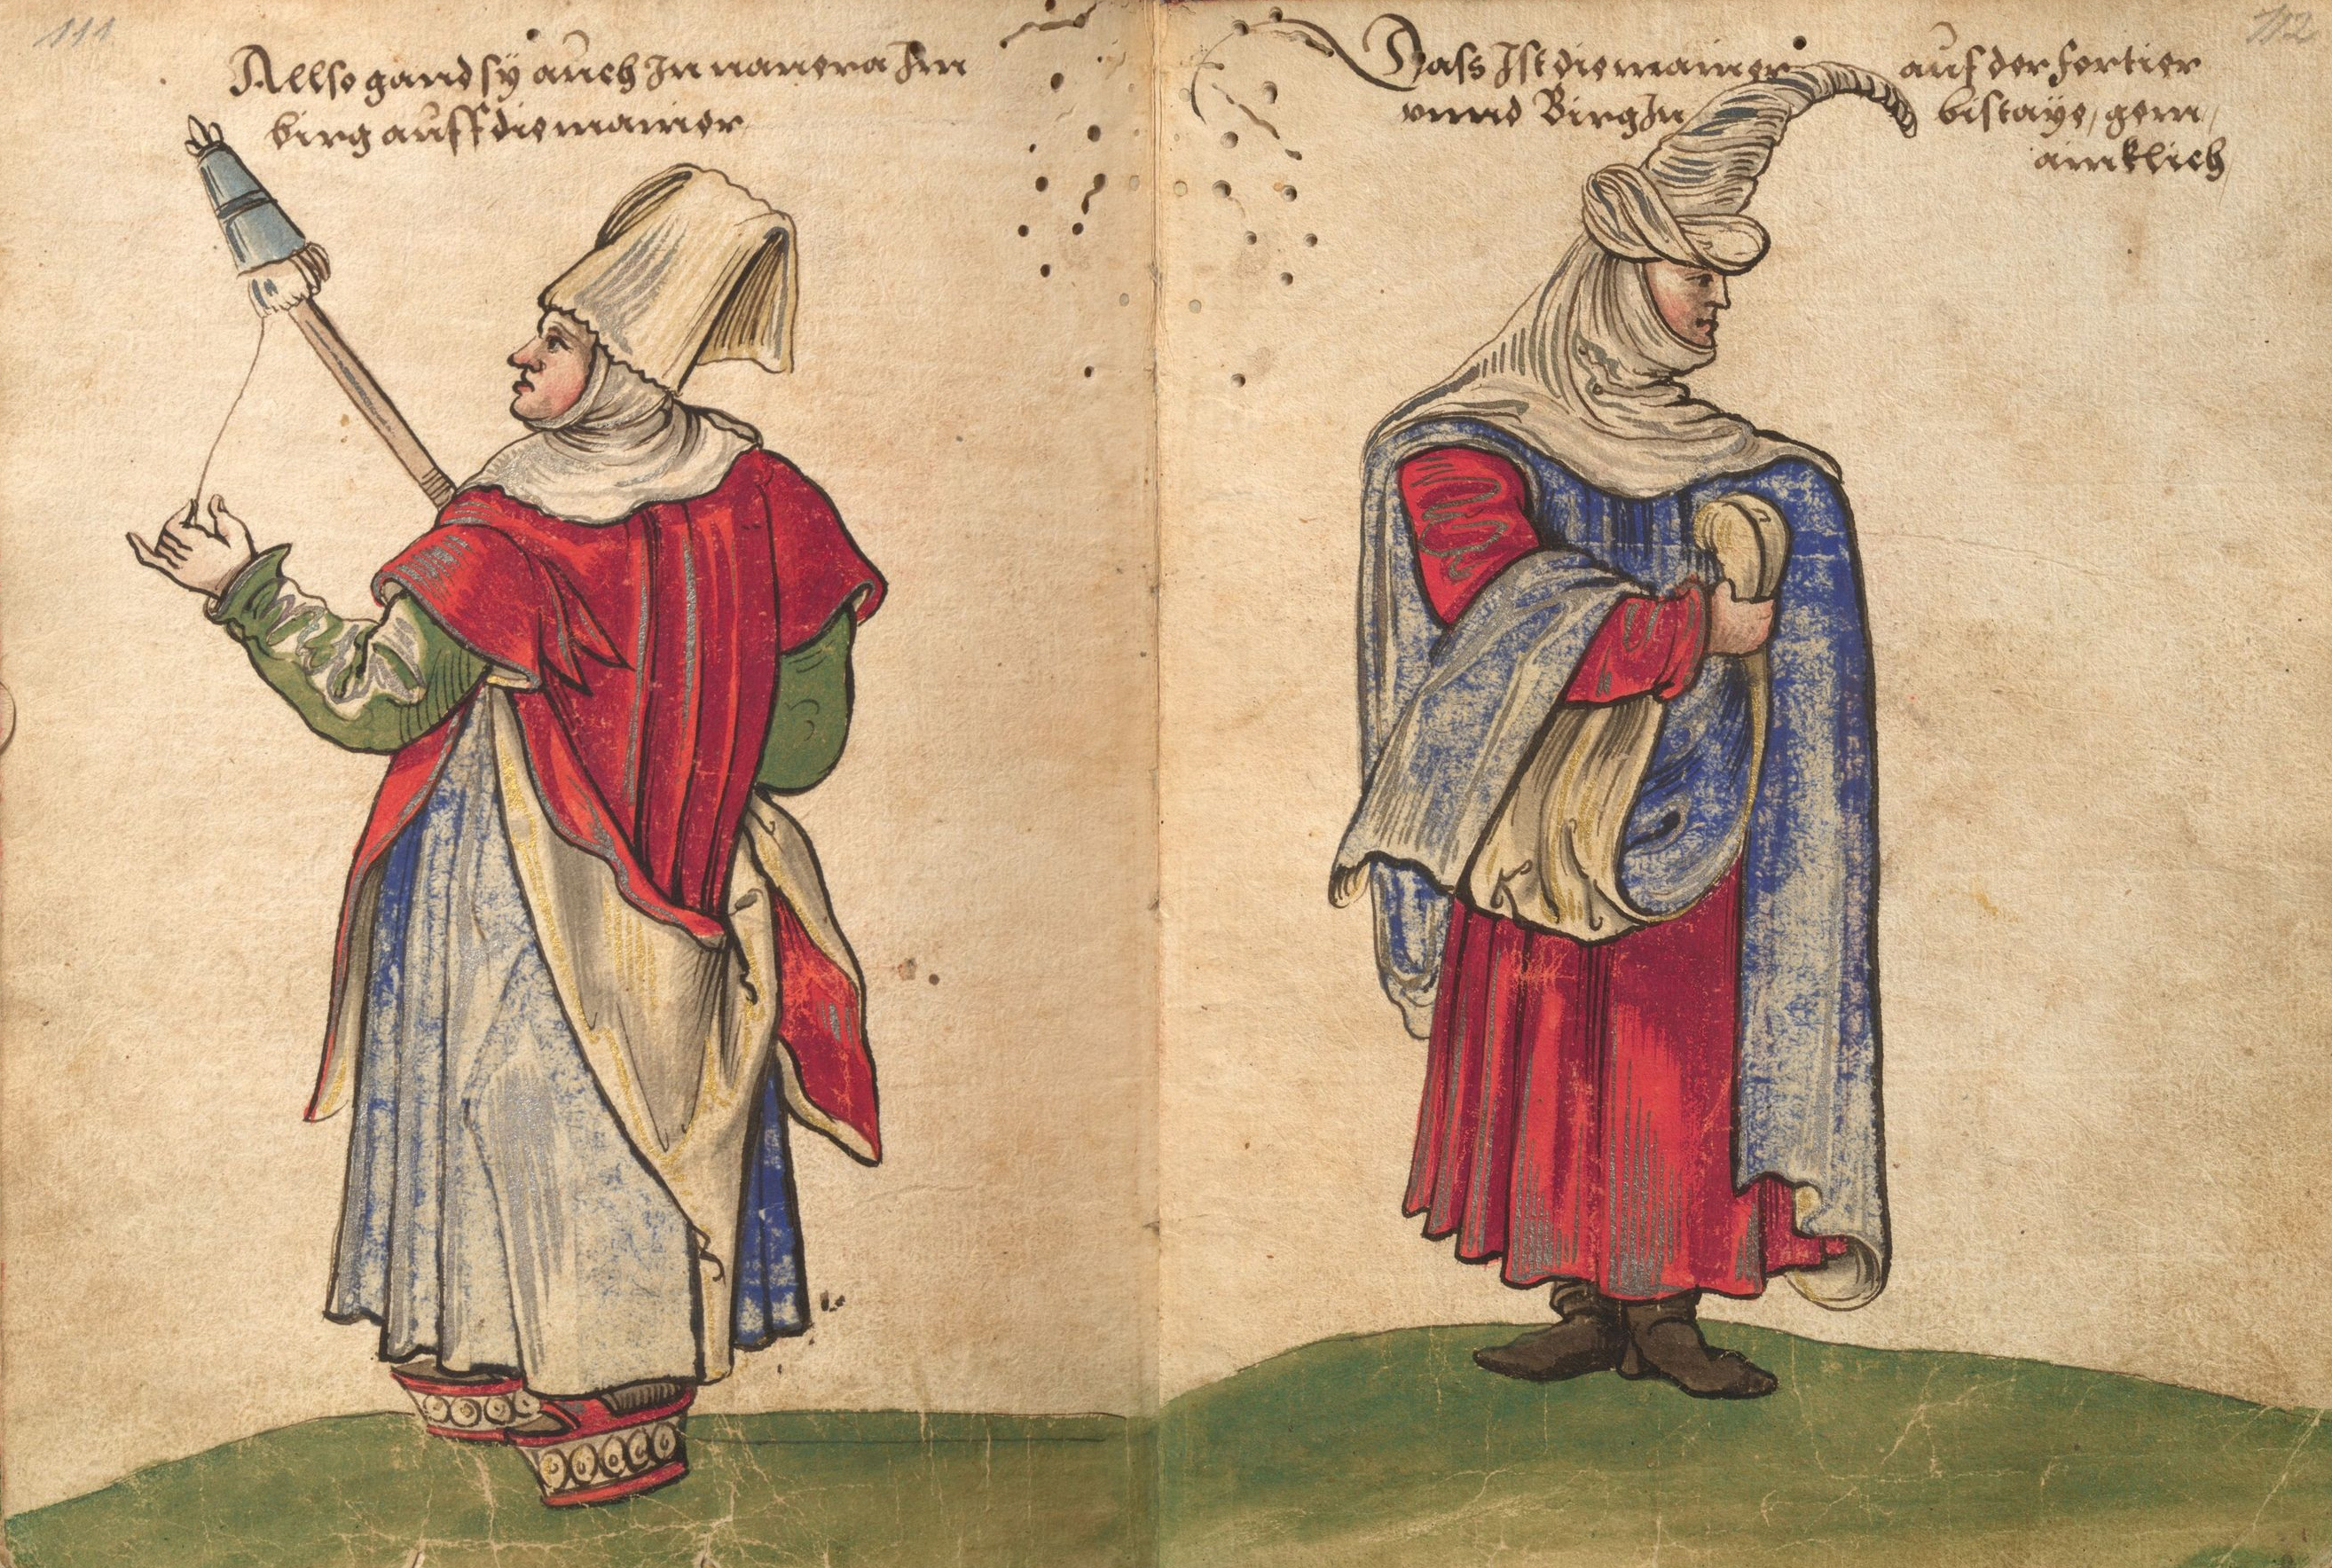 111
Allso gand sy auch In navera Im
birg auff die manier
112
Dass Ist die manier auf der fortier
unnd Birg In biscaÿe, gem,
aincklich